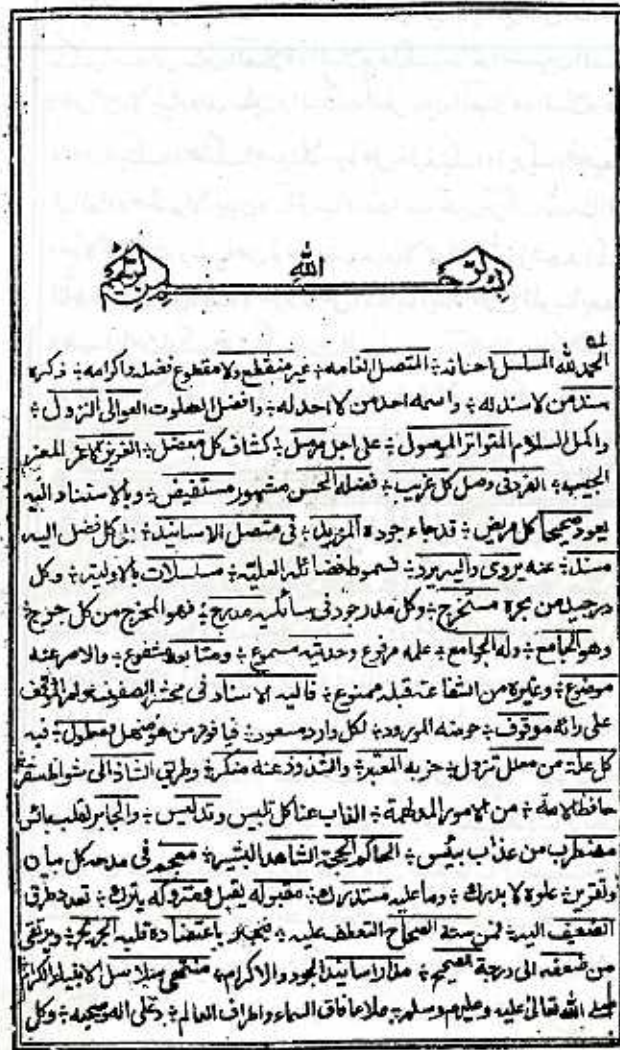 بسم الله الرحمن الرحيم
الحمد لله المسلسل احسانه ؛ المتصل انعامه ؛ غير منقطع ولا مقطوع فضله واكرامه ؛ ذكره
سند من لا سند له ؛ واسمه احد من لا احد له ؛ وافضل الصلوت العوالى النزول ؛
واكمل السلام المتواتر الموصول ؛ على اجل مرسل ؛ كشاف كل معضل ؛ العزيز الاعز المعز
الحبيب ؛ الفرد فى وصل كل غريب ؛ فضله الحسن مشهور مستفيض ؛ وبالاستناد اليه
يعود صحيحا كل مريض ؛ قد جاء جوده المزيد ؛ فى متصل الاسانيد ؛ بل كل فضل اليه
مسند ؛ عنه يروى واليه يرد ؛ فسموط فضائله العليّه ؛ مسلسلات بالاوليّة ؛ وكل
در جيد من بحره مستخرج ؛ وكل مدر جود فى سائليه مدرج ؛ فهو المخرج من كل حرج
وهو الجامع ؛ وله الجوامع ؛ علمه مرفوع وحديثه مسموع ؛ ومتابعه مشفوع ؛ والاصر عنه
موضوع ؛ وغيره من الشفاعة قبله ممنوع ؛ فاليه الاسناد فى محشر الصفوف وامر الموقف
على رائه موقوف ؛ حوضه المورود ؛ لكل وارد مسعود ؛ فيا فوز من هو منهل معلول ؛ فيه
كل علة من معلل تزول ؛ حزبه المعتبر ؛ والشذوذ عنه منكر ؛ وطريق الشاذ الى شواظ سقر
حافظ الامة ؛ من الامور المدلهمة ؛ الذاب عنا كل تلبيس وتدليس ؛ والجابر لقلب بائس
مضطرب من عذاب بيئس ؛ الحاكم الحجة الشاهد البشير ؛ معجم فى مدحه كل بيان
وتقرير ؛ علوه لا يدرك ؛ وما عليه مستدرك ؛ مقبوله يقبل ومتروكه يترك ؛ تعدد طرق
الضعيف اليه ؛ فمن سنة الصحاح التعطف عليه ؛ فيجبر باعتضاده قلبه الجريح ؛ ويرتقى
من ضعفه الى درجة الصحيح ؛ مدار اسانيد الجود والاكرام ؛ منتهى سلاسل الانبياء الكرام
صلى الله تعالى عليه وعليهم وسلم ؛ ملاء آفاق السماء واطراف العالم ؛ وعلى اله وصحبه ؛ وكل